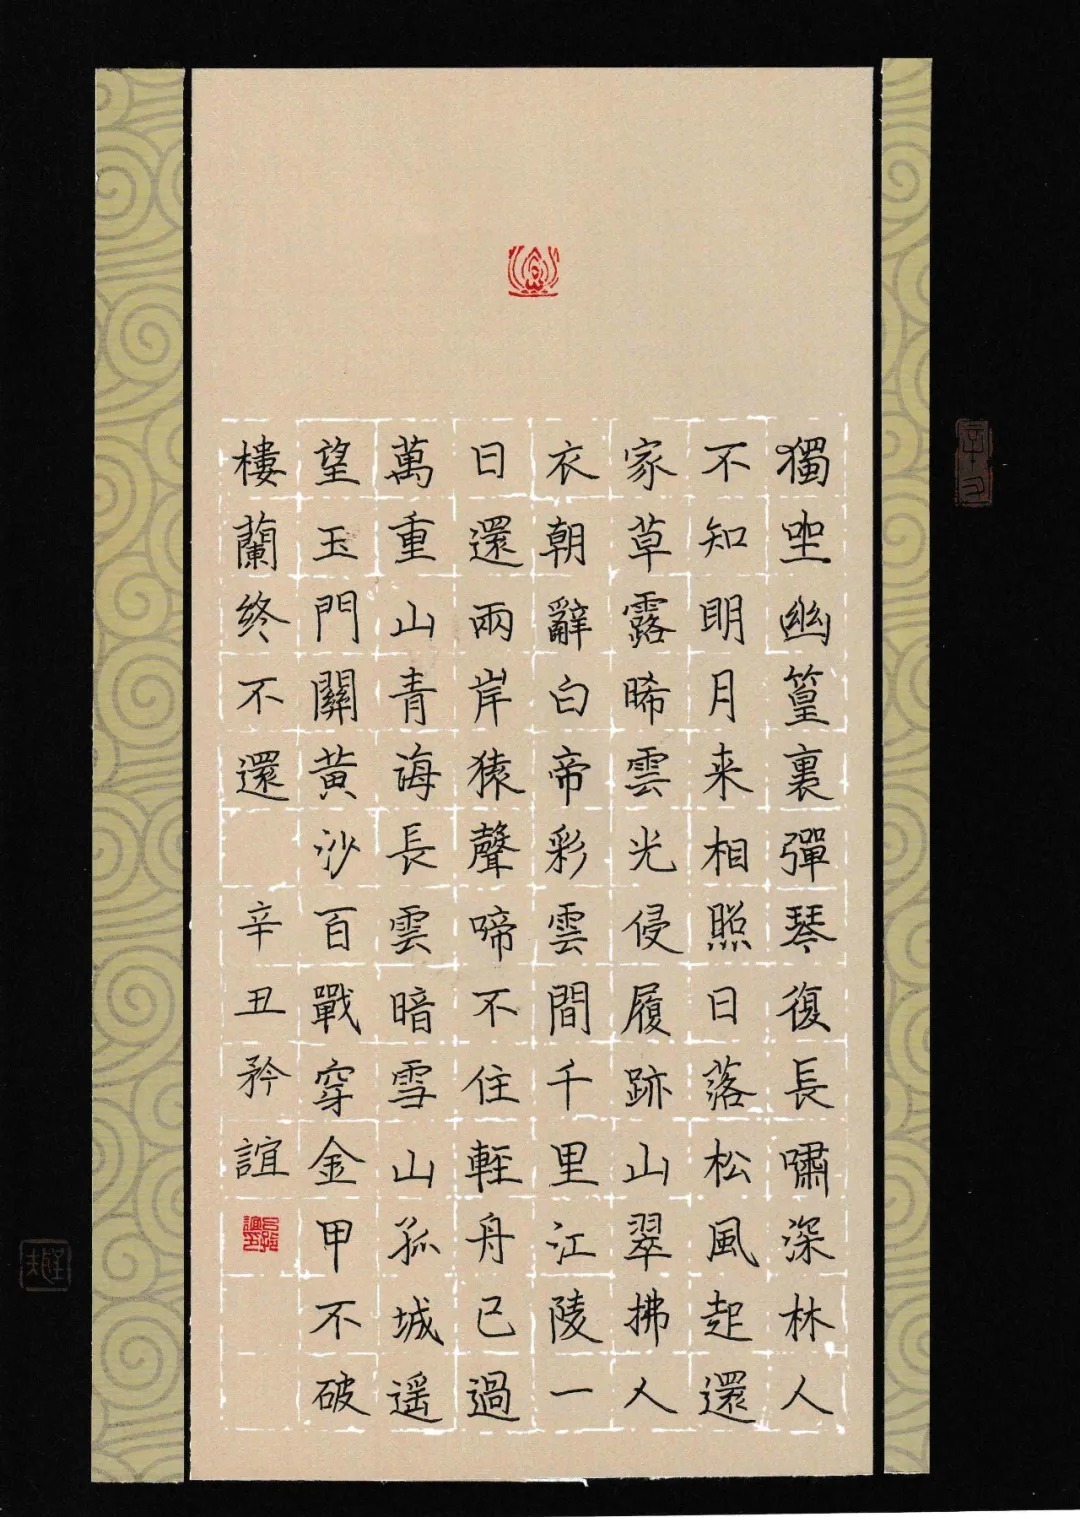 獨坐幽篁裏彈琴復長嘯深林人
不知明月来相照日落松風起還
家草露晞雲光侵履跡山翠拂人
衣朝辭白帝彩雲間千里江陵一
日還兩岸猿聲啼不住輕舟已過
萬重山青海長雲暗雪山孤城遥
望玉門關黃沙百戰穿金甲不破
樓蘭終不還 辛丑矜誼